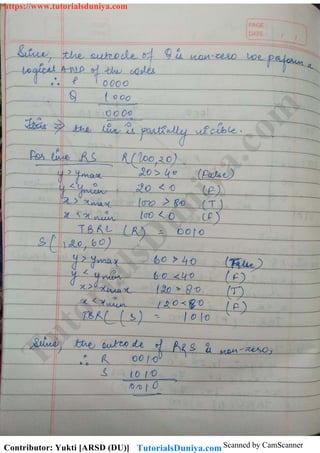 https://www.tutorialsduniya.com
PAGE
DATE / /
Since, the outcode of Q is non-zero we perform a
logical AND of the codes
∴ P 0000
Q 1000
0000
This ⇒ the line is partially visible.
For line RS R(100,20)
y > ymax 20 > 40 (False)
y < ymin 20 < 0 (F)
x > xmax 100 > 80 (T)
x < xmin 100 < 0 (F)
TBRL (R) = 0010
S(120,60)
y > ymax 60 > 40
y < ymin 60 < 40 (F)
x > xmax 120 > 80 (T)
x < xmin 120 < 80 (F)
TBRL (S) = 1010
Since, the outcode of R & S is non-zero,
∴ R 0010
S 1010
0010
TutorialsDuniya.com
Contributor: Yukti [ARSD (DU)] TutorialsDuniya.com Scanned by CamScanner